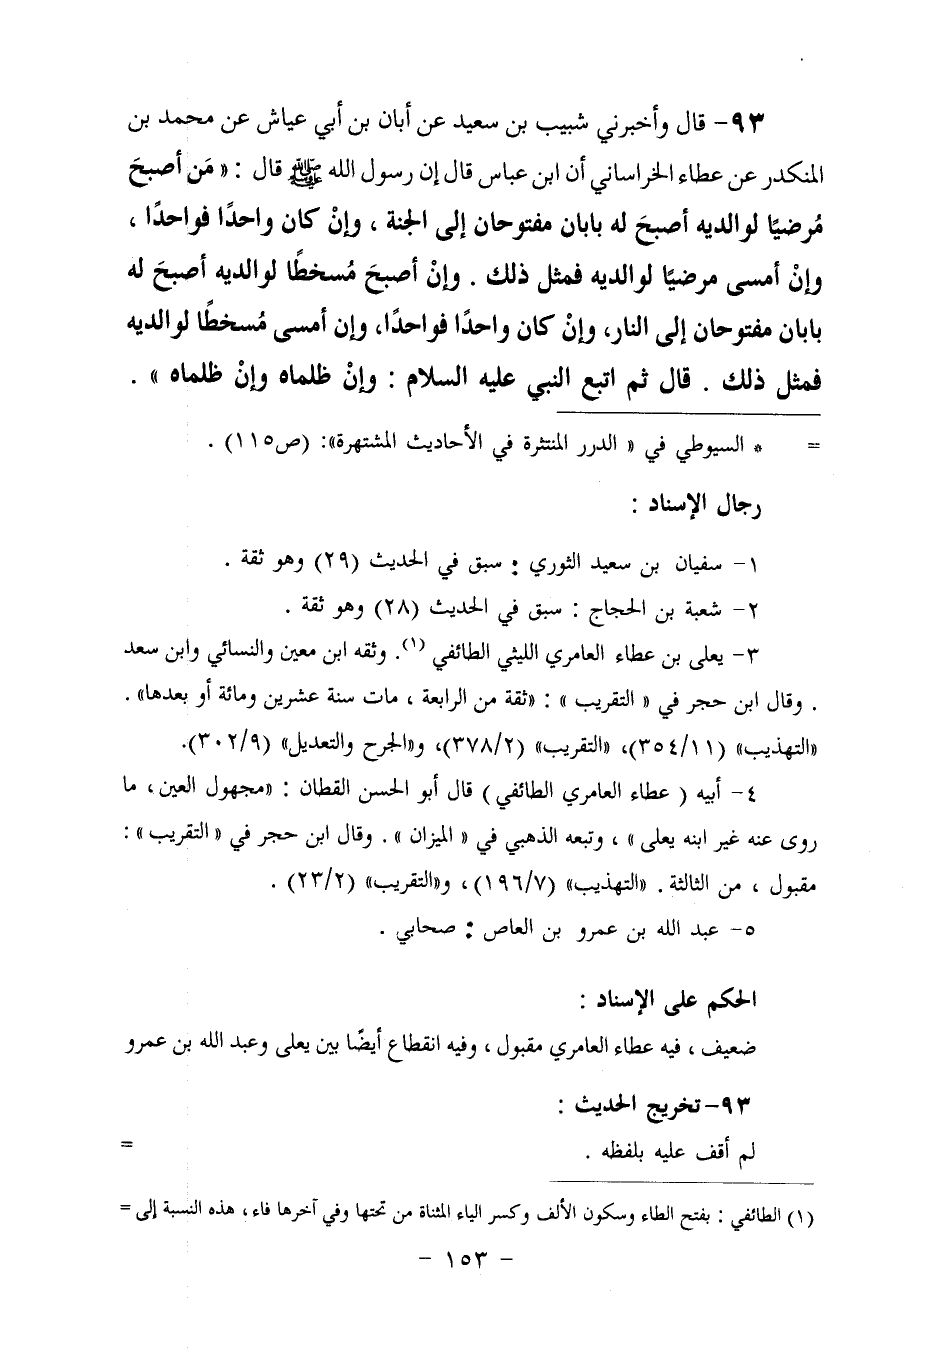 ٩٣- قال وأخبرني شبيب بن سعيد عن أبان بن أبي عياش عن محمد بن
المنكدر عن عطاء الخراساني أن ابن عباس قال إن رسول الله ﷺ قال : « مَن أصبحَ
مُرضيًا لوالديه أصبحَ له بابان مفتوحان إلى الجنة ، وإنْ كان واحدًا فواحدًا ،
وإنْ أمسى مرضيًا لوالديه فمثل ذلك . وإنْ أصبحَ مُسخطًا لوالديه أصبحَ له
بابان مفتوحان إلى النار، وإنْ كان واحدًا فواحدًا، وإن أمسى مُسخطًا لوالديه
فمثل ذلك . قال ثم اتبع النبي عليه السلام : وإنْ ظلماه وإنْ ظلماه » .
= * السيوطي في « الدرر المنتثرة في الأحاديث المشتهرة»: (ص١١٥) .
رجال الإسناد :
١- سفيان بن سعيد الثوري : سبق في الحديث (٢٩) وهو ثقة .
٢- شعبة بن الحجاج : سبق في الحديث (٢٨) وهو ثقة .
٣- يعلى بن عطاء العامري الليثي الطائفي (١). وثقه ابن معين والنسائي وابن سعد
. وقال ابن حجر في « التقريب » : «ثقة من الرابعة ، مات سنة عشرين ومائة أو بعدها» .
«التهذيب» (٣٥٤/١١)، «التقريب» (٣٧٨/٢)، و«الجرح والتعديل» (٣٠٢/٩).
٤- أبيه ( عطاء العامري الطائفي ) قال أبو الحسن القطان : «مجهول العين ، ما
روى عنه غير ابنه يعلى » ، وتبعه الذهبي في « الميزان » . وقال ابن حجر في « التقريب » :
مقبول ، من الثالثة . «التهذيب» (١٩٦/٧)، و«التقريب» (٢٣/٢) .
٥- عبد الله بن عمرو بن العاص : صحابي .
الحكم على الإسناد :
ضعيف ، فيه عطاء العامري مقبول ، وفيه انقطاع أيضًا بين يعلى وعبد الله بن عمرو
٩٣- تخريج الحديث :
لم أقف عليه بلفظه . =
(١) الطائفي : بفتح الطاء وسكون الألف وكسر الياء المثناة من تحتها وفي آخرها فاء ، هذه النسبة إلى =
- ١٥٣ -